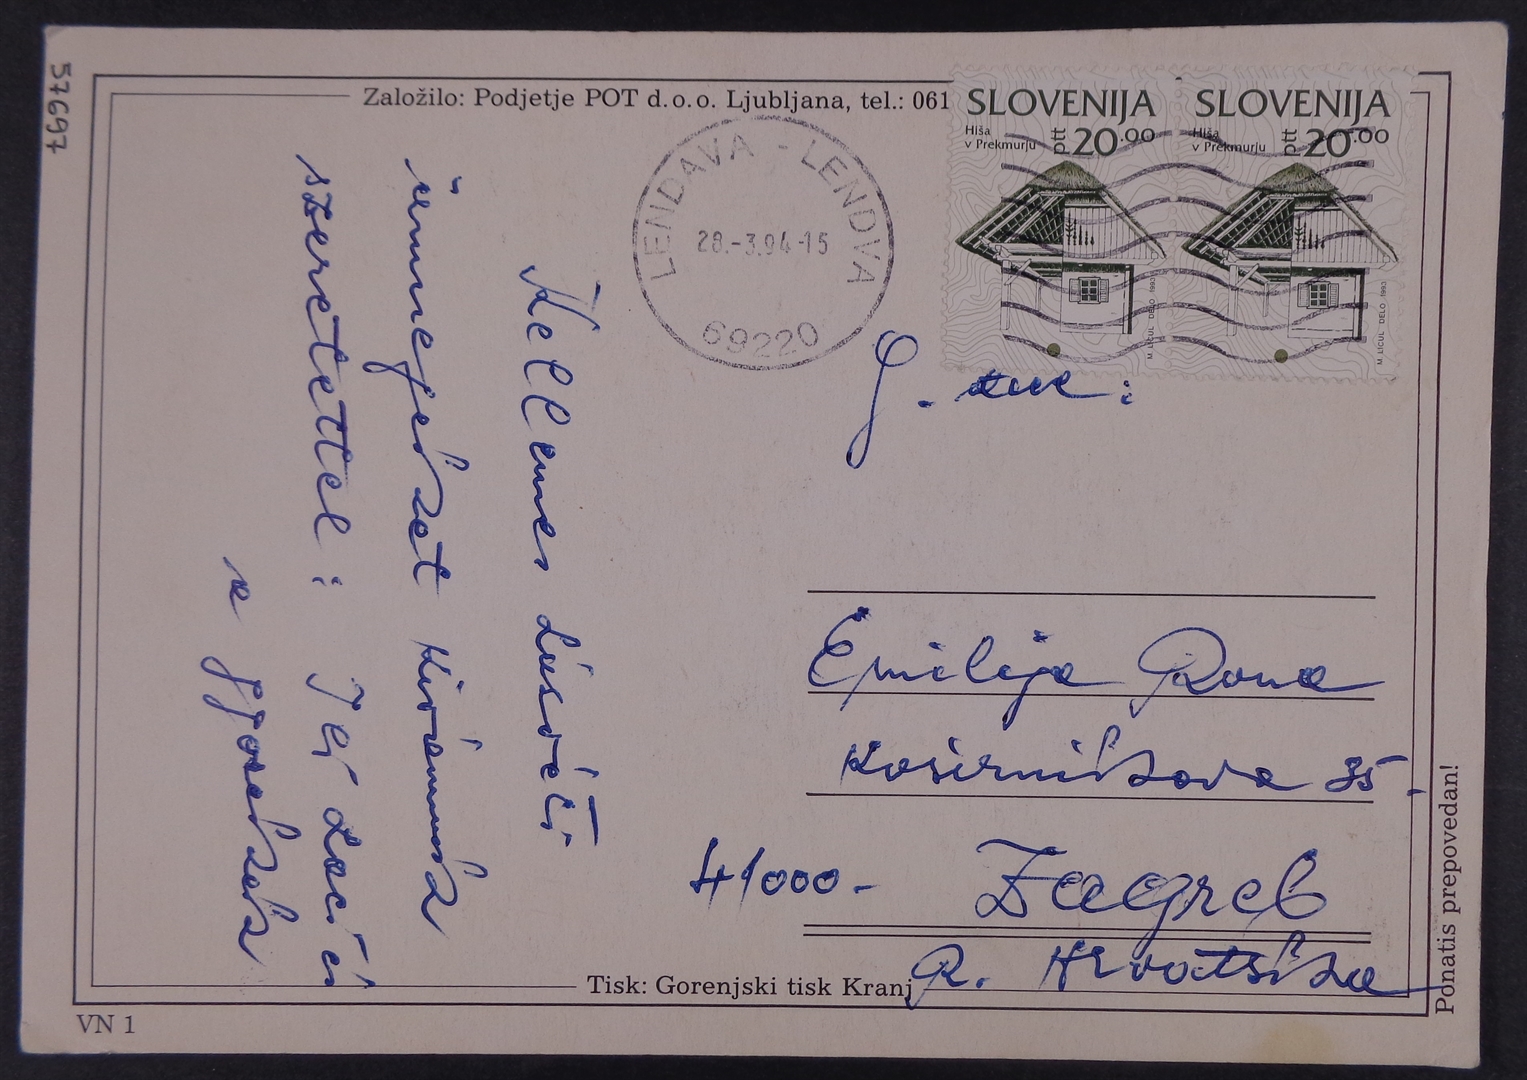 57697
Založilo: Podjetje POT d.o.o. Ljubljana, tel.: 061
SLOVENIJA
Hiša
v Prekmurju
ptt 20.00
M. LICUL DELO 1993
SLOVENIJA
Hiša
v Prekmurju
ptt 20.00
M. LICUL DELO 1993
LENDAVA - LENDVA
28.-3.94-15
69220
Kellemes húsvéti
ünnepeket kívánunk
szeretettel:
a gyerekek
Emilija Rona
Koširnikova 35.
41000- Zagreb
R. Hrvatska
Tisk: Gorenjski tisk Kranj
Ponatis prepovedan!
VN 1